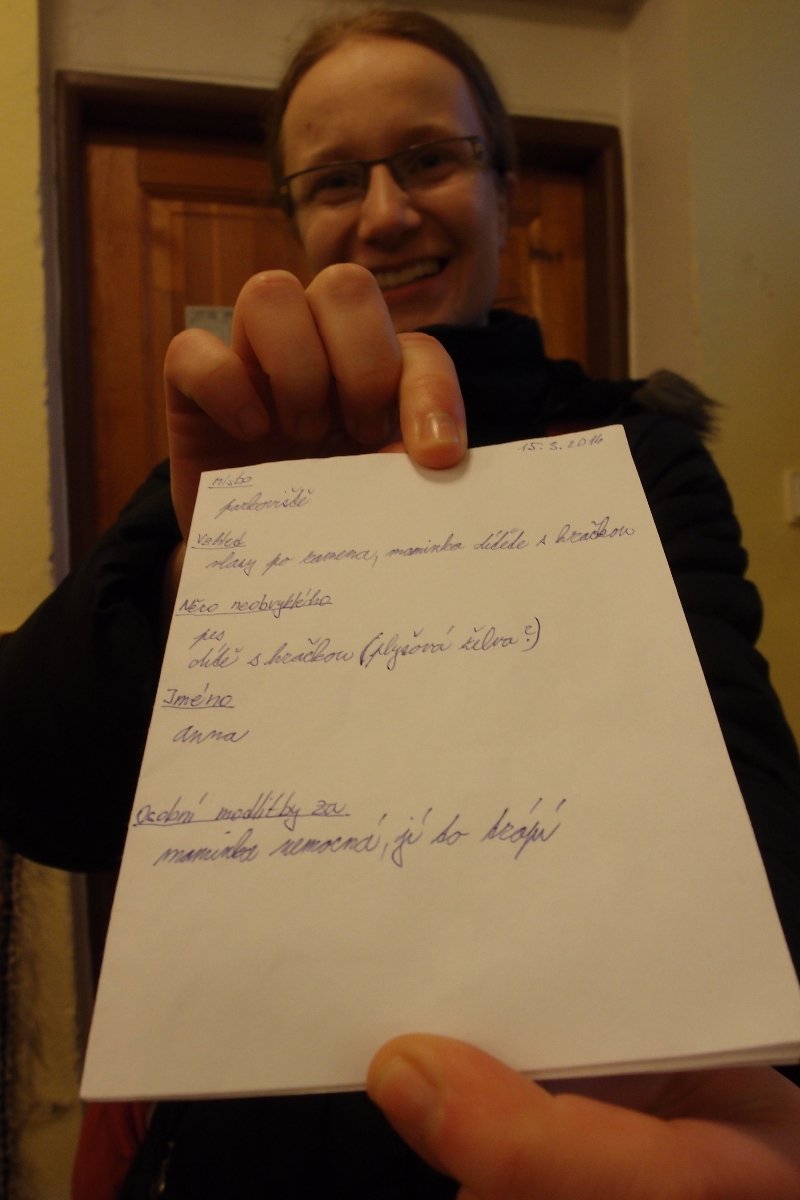 15. 3. 2016
Místo
parkoviště
Vzhled
vlasy po ramena, maminka dítěte s hračkou
Něco neobvyklého
pes
dítě s hračkou (plyšová želva?)
Jméno
Anna
Osobní modlitby za
maminka nemocná, jí to trápí